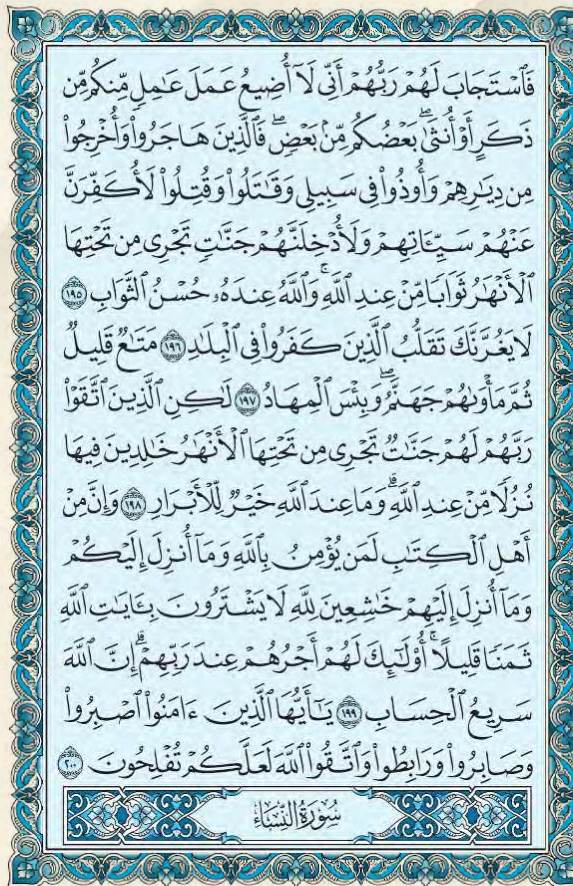 فَٱسْتَجَابَ لَهُمْ رَبُّهُمْ أَنِّى لَآ أُضِيعُ عَمَلَ عَٰمِلٍ مِّنكُم مِّن
ذَكَرٍ أَوْ أُنثَىٰۖ بَعْضُكُم مِّنۢ بَعْضٖۖ فَٱلَّذِينَ هَاجَرُوا۟ وَأُخْرِجُوا۟
مِن دِيَٰرِهِمْ وَأُوذُوا۟ فِى سَبِيلِى وَقَٰتَلُوا۟ وَقُتِلُوا۟ لَأُكَفِّرَنَّ
عَنْهُمْ سَيِّـَٔاتِهِمْ وَلَأُدْخِلَنَّهُمْ جَنَّٰتٍ تَجْرِى مِن تَحْتِهَا
ٱلْأَنْهَٰرُ ثَوَابًا مِّنْ عِندِ ٱللَّهِۚ وَٱللَّهُ عِندَهُۥ حُسْنُ ٱلثَّوَابِ ١٩٥
لَا يَغُرَّنَّكَ تَقَلُّبُ ٱلَّذِينَ كَفَرُوا۟ فِى ٱلْبِلَٰدِ ١٩٦ مَتَٰعٌ قَلِيلٌ
ثُمَّ مَأْوَىٰهُمْ جَهَنَّمُۖ وَبِئْسَ ٱلْمِهَادُ ١٩٧ لَٰكِنِ ٱلَّذِينَ ٱتَّقَوْا۟
رَبَّهُمْ لَهُمْ جَنَّٰتٌ تَجْرِى مِن تَحْتِهَا ٱلْأَنْهَٰرُ خَٰلِدِينَ فِيهَا
نُزُلًا مِّنْ عِندِ ٱللَّهِۗ وَمَا عِندَ ٱللَّهِ خَيْرٌ لِّلْأَبْرَارِ ١٩٨ وَإِنَّ مِنْ
أَهْلِ ٱلْكِتَٰبِ لَمَن يُؤْمِنُ بِٱللَّهِ وَمَآ أُنزِلَ إِلَيْكُمْ
وَمَآ أُنزِلَ إِلَيْهِمْ خَٰشِعِينَ لِلَّهِ لَا يَشْتَرُونَ بِـَٔايَٰتِ ٱللَّهِ
ثَمَنًا قَلِيلًاۚ أُو۟لَٰٓئِكَ لَهُمْ أَجْرُهُمْ عِندَ رَبِّهِمْۗ إِنَّ ٱللَّهَ
سَرِيعُ ٱلْحِسَابِ ١٩٩ يَٰٓأَيُّهَا ٱلَّذِينَ ءَامَنُوا۟ ٱصْبِرُوا۟
وَصَابِرُوا۟ وَرَابِطُوا۟ وَٱتَّقُوا۟ ٱللَّهَ لَعَلَّكُمْ تُفْلِحُونَ ٢٠٠
سُورَةُ النِّسَاءِ